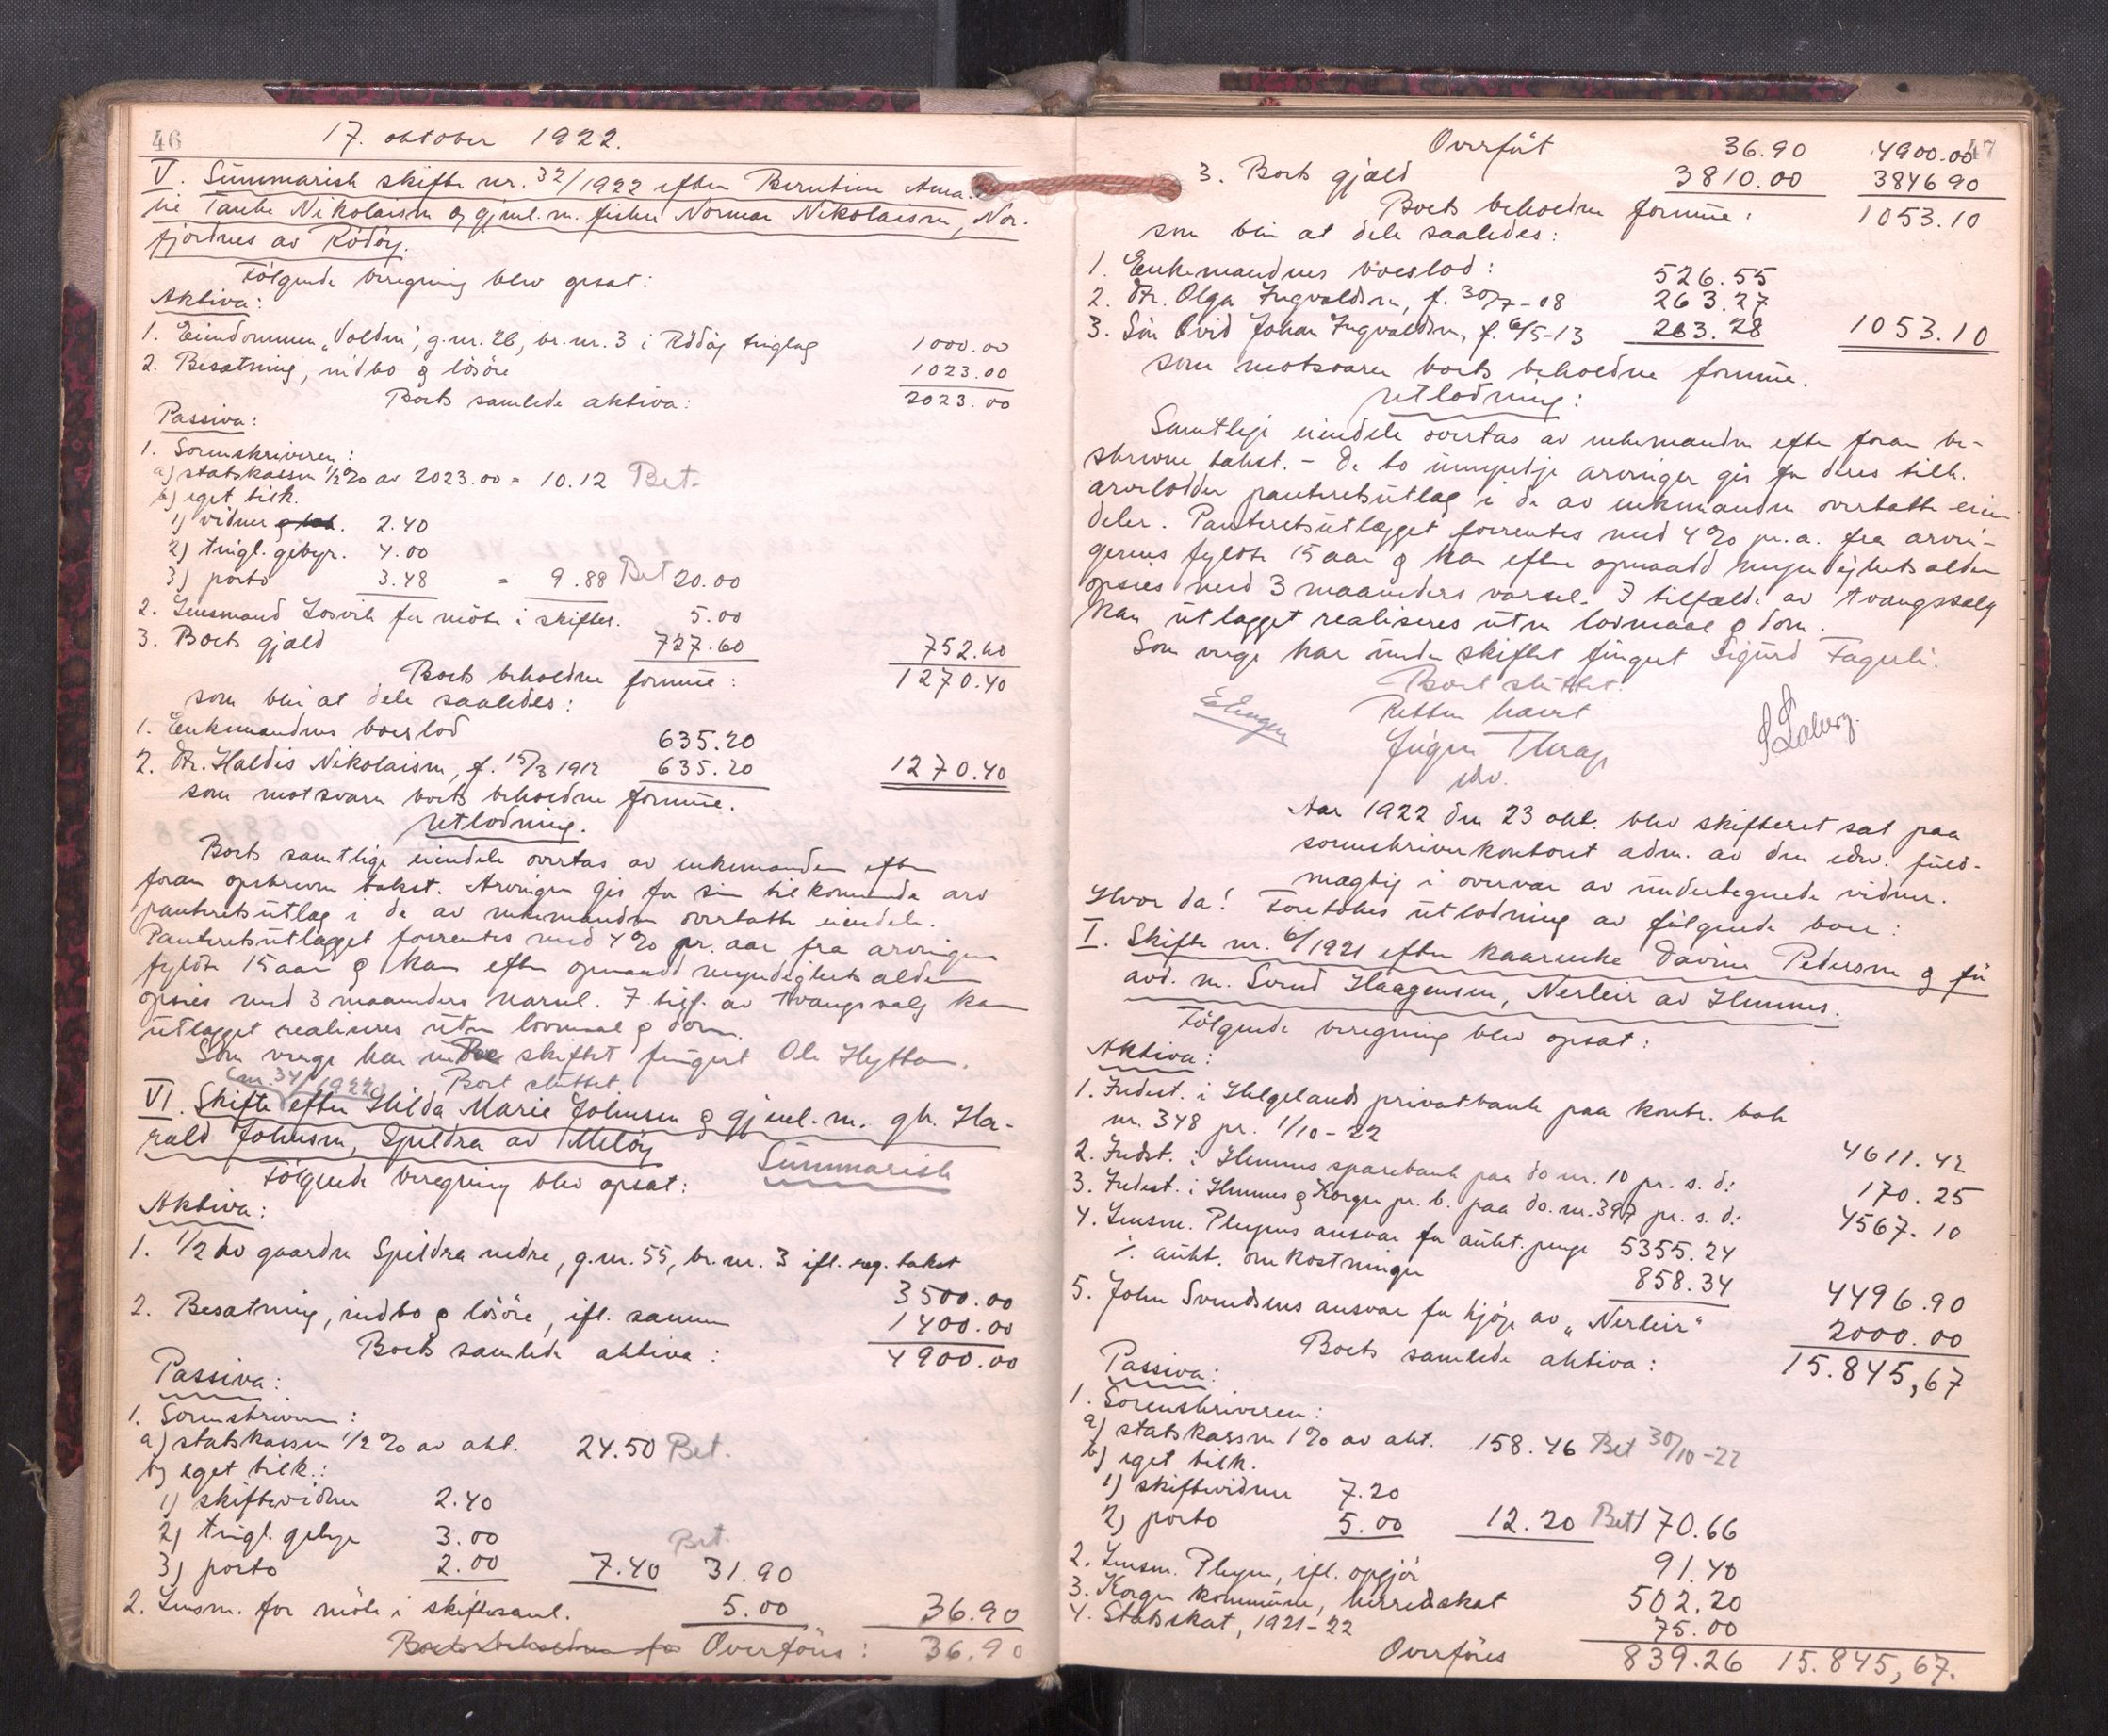 46
17. oktober 1922.
V. Summarisk skifte nr. 32/1922 efter Berntine Ama-
lie Tanke Nikolaisen og gjenl. m. fisker Normar Nikolaisen, Nor-
fjordnes av Rödöy.
Fölgende beregning blev opsat:
Aktiva:
1. Eiendommen "Volden", g.nr. 26, br.nr. 3 i Rödöy tinglag 1000.00
2. Besætning, indbo og lösöre 1023.00
Boets samlede aktiva: 2023.00
Passiva:
1. Sorenskriveren:
a) statskassen 1/2% av 2023.00 = 10.12 Bet.
b) eget tilk.
1) vidner 2.40
2) tingl. gebyr. 4.00
3) porto 3.48 = 9.88 Bet 20.00
2. Lensmand Losvik for möte i skiftes. 5.00
3. Boets gjæld 727.60 752.60
Boets beholdne formue: 1270.40
som blir at dele saaledes:
1. Enkemandens boeslod 635.20
2. Dtr. Haldis Nikolaisen, f. 15/3 1912 635.20 1270.40
som motsvarer boets beholdne formue.
Utlodning.
Boets samtlige eiendele overtas av enkemanden efter
foran opskrevne takst. Arvingen gis for sin tilkommende arv
panteretsutlæg i de av enkemanden overtatte eiendele.
Panteretsutlægget forrentes med 4% pr. aar fra arvingens
fyldte 15 aar og kan efter opnaadd myndighets alder
opsies med 3 maaneders varsel. I tilf. av tvangssalg kan
utlægget realiseres uten lovmaal og dom.
Som verge har under skiftet fungert Ole Hyttan.
Boet sluttet
(nr. 34/1922)
VI. Skifte efter Hilda Marie Johnsen og gjenl. m. gb. Ha-
rald Johnsen, Spildra av Melöy
Summarisk
Fölgende beregning blev opsat:
Aktiva:
1. 1/2 av gaarden Spildra nedre, g.nr. 55, br.nr. 3 ifl. reg. takst
3500.00
2. Besætning, indbo og lösöre, ifl. samme 1400.00
Boets samlede aktiva: 4900.00
Passiva:
1. Sorenskriveren:
a) statskassen 1/2% av akt. 24.50 Bet.
b) eget tilk.:
1) skiftevidner 2.40
2) tingl. gebyr 3.00
Bet.
3) porto 2.00 7.40 31.90
2. Lensm. for möte i skiftesaml. 5.00 36.90
Boets beholdne fo Overföres: 36.90
47
Overfört 36.90 4900.00
3. Boets gjæld 3810.00 3846 90
Boets beholdne formue: 1053.10
som blir at dele saaledes:
1. Enkemandens boeslod: 526.55
2. Dtr. Olga Ingvaldsen, f. 30/7-08 263.27
3. Sön Ovid Johan Ingvaldsen, f. 6/5-13 263.28 1053.10
som motsvarer boets beholdne formue.
Utlodning:
Samtlige eiendele overtas av enkemanden efter foran be-
skrevne takst. - De to umyndige arvinger gis for deres tilk.
arvelodder panteretsutlæg i de av enkemanden overtatte eien-
deler. Panteretsutlægget forrentes med 4% pr. a. fra arvin-
gernes fyldte 15 aar og kan efter opnaadd myndighets alder
opsies med 3 maaneders varsel. I tilfælde av tvangssalg
kan utlægget realiseres uten lovmaal og dom.
Som verge har under skiftet fungert Sigurd Fagerli.
Boet sluttet.
Retten hævet
Jürgen Thrap
edv.
Aar 1922 den 23 okt. blev skifteret sat paa
sorenskriverkontoret adm. av den edv. fuld-
mægtig i overvær av undertegnede vidner.
Hvor da! Foretokes utlodning av fölgende boer:
I. Skifte nr. 6/1921 efter kaarenke Davine Pedersen og för
avd. m. Svend Haagensen, Nerleir av Hemnes.
Fölgende beregning blev opsat:
Aktiva:
1. Indest. i Helgelands privatbank paa kontr. bok
nr. 348 pr. 1/10-22 4611.42
2. Indst. i Hemnes sparebank paa do nr. 10 pr. s. d: 170.25
3. Indest. i Hemnes og Korgen pr. b. paa do. nr. 397 pr. s. d: 4567.10
4. Lensm. Pleyms ansvar for aukt. penge 5355.24
÷ aukt. omkostninger 858.34 4496.90
5. John Svendsens ansvar for kjöp av "Nerleir" 2000.00
Boets samlede aktiva: 15.845,67
Passiva:
1. Sorenskriveren:
a) statskassen 1% av akt. 158.46 Bet 30/10-22
b) eget tilk.
1) skiftevidner 7.20
2) porto 5.00 12.20 Bet 170.66
2. Lensm. Pleym, ifl. opgjör 91.40
3. Korgen kommune, herredsskat 502.20
4. Statsskat, 1921-22 75.00
Overföres 839.26 15.845,67.